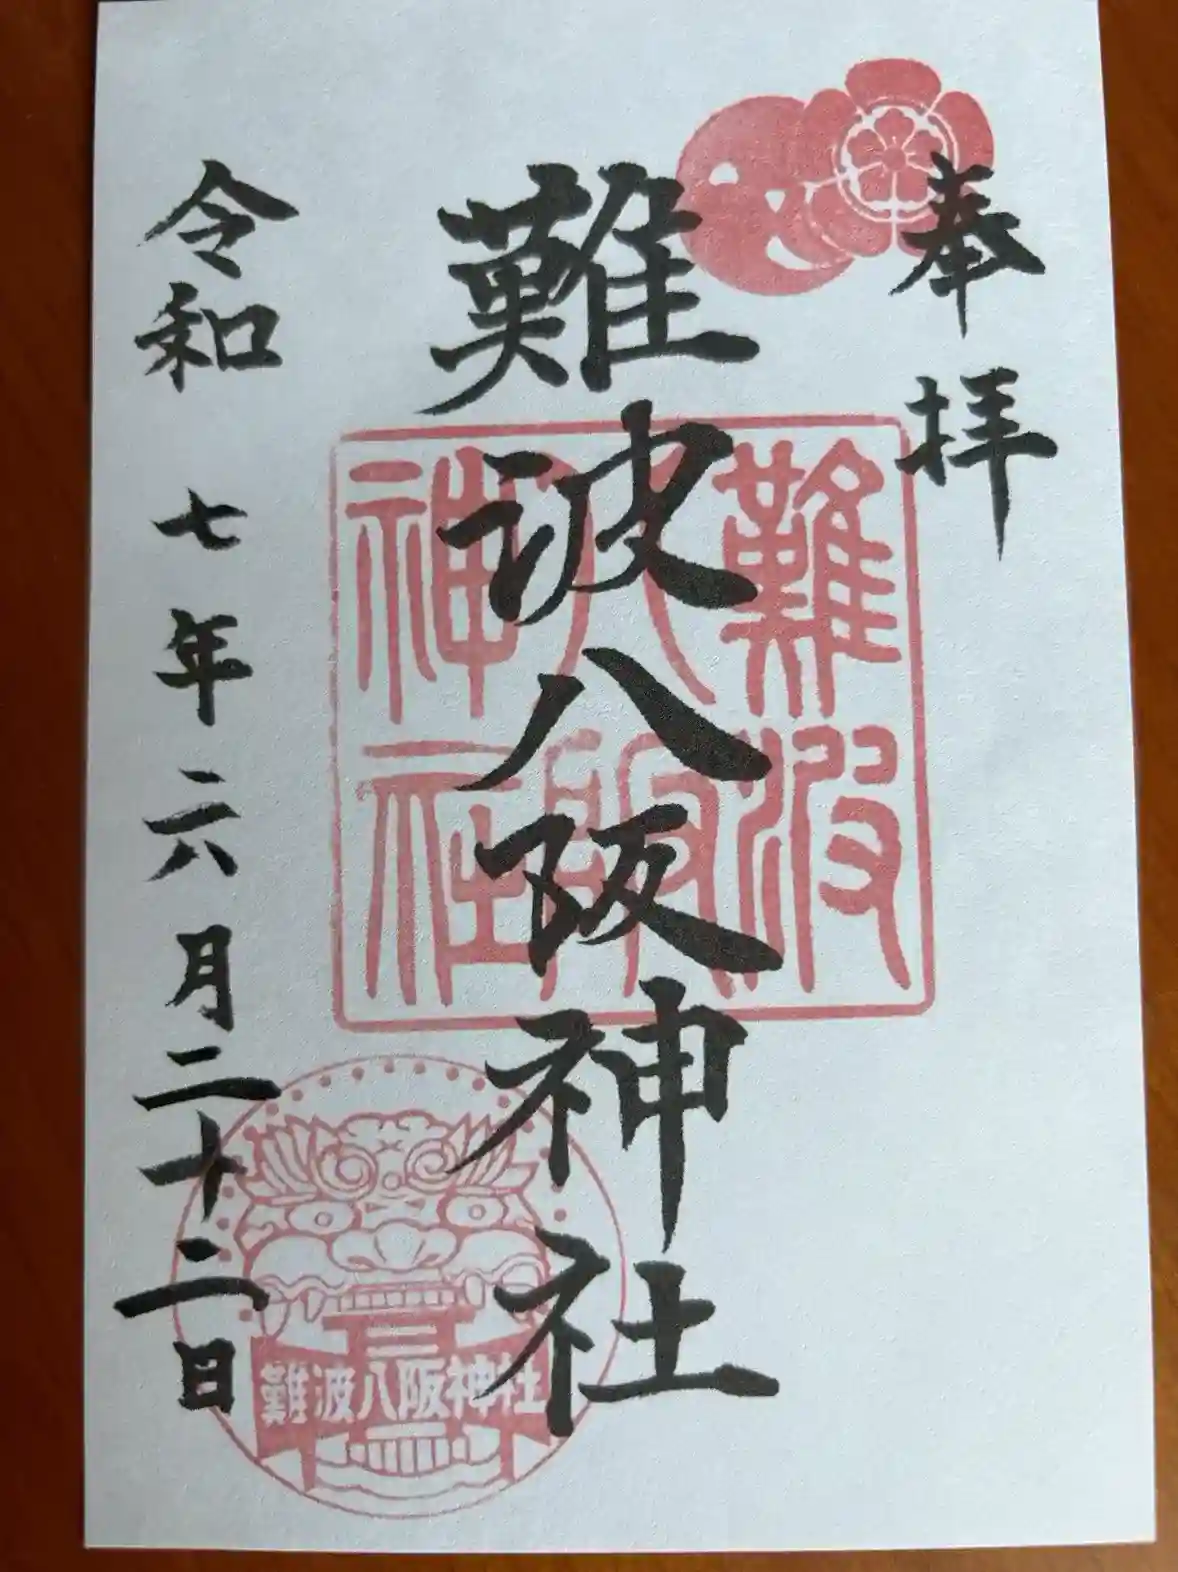 奉拝
難波八阪神社
難波
八阪
神社
令和 七年 六月二十二日
難波八阪神社